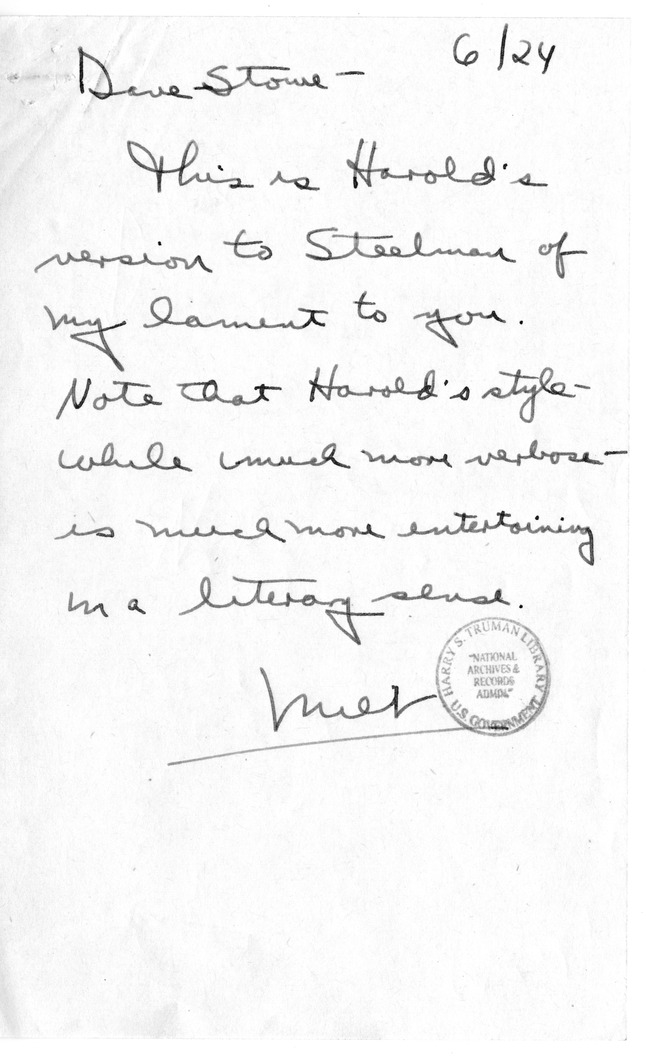 6/24
Dave Stowe —
This is Harold's
version to Steelman of
my lament to you.
Note that Harold's style —
while much more verbose —
is much more entertaining
in a literary sense.
Milt
HARRY S. TRUMAN LIBRARY
"NATIONAL
ARCHIVES &
RECORDS
ADMIN."
U.S. GOVERNMENT